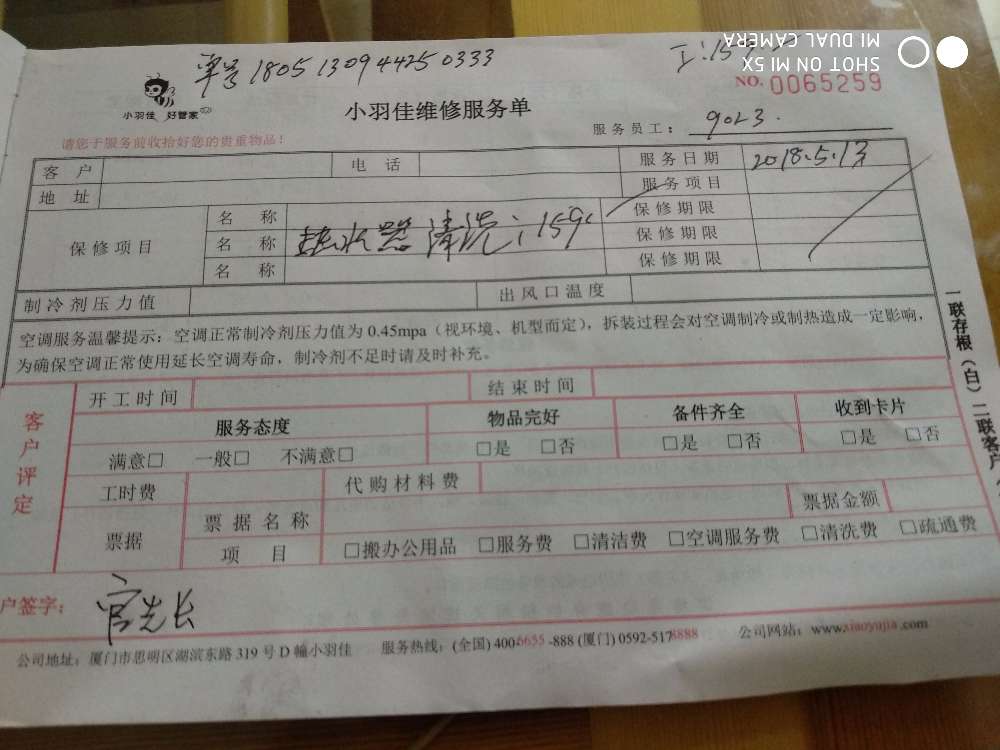 单号 180513094425 0333
SHOT ON MI 5X
MI DUAL CAMERA
NO. 0065259
小羽佳 好管家
小羽佳维修服务单
服务员工：
请您于服务前收拾好您的贵重物品！
客 户 电 话 服务日期 2018.5.13
地 址 服务项目
保修项目 名 称 保修期限
名 称 热水器清洗；159 保修期限
名 称 保修期限
制冷剂压力值 出风口温度
空调服务温馨提示：空调正常制冷剂压力值为 0.45mpa（视环境、机型而定），拆装过程会对空调制冷或制热造成一定影响，
为确保空调正常使用延长空调寿命，制冷剂不足时请及时补充。
一联存根（白）二联客户
客户评定
开工时间 结束时间
服务态度 物品完好 备件齐全 收到卡片
满意□ 一般□ 不满意□ □是 □否 □是 □否 □是 □否
工时费 代购材料费
票据 票据名称 票据金额
项 目 □搬办公用品 □服务费 □清洁费 □空调服务费 □清洗费 □疏通费
户签字：
公司地址：厦门市思明区湖滨东路 319 号 D 幢小羽佳 服务热线：(全国) 4006655-888 (厦门) 0592-5178888 公司网站：www.xiaoyujia.com